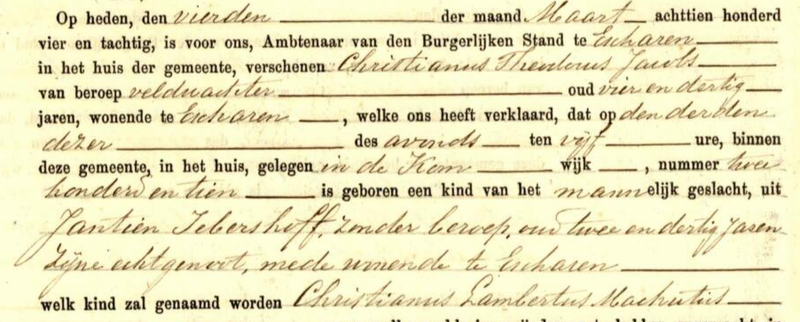 Op heden, den vierden der maand Maart achttien honderd
vier en tachtig, is voor ons, Ambtenaar van den Burgerlijken Stand te Escharen
in het huis der gemeente, verschenen Christianus Theodorus Jacobs
van beroep veldwachter oud vier en dertig
jaren, wonende te Escharen, welke ons heeft verklaard, dat op den derden
dezer des avonds ten vijf ure, binnen
deze gemeente, in het huis, gelegen in de Kom wijk , nummer twee
honderd en tien is geboren een kind van het mannelijk geslacht, uit
Jantien zonder beroep, oud twee en dertig jaren
zijne echtgenoot, mede wonende te Escharen
welk kind zal genaamd worden Christianus Lambertus Machutus